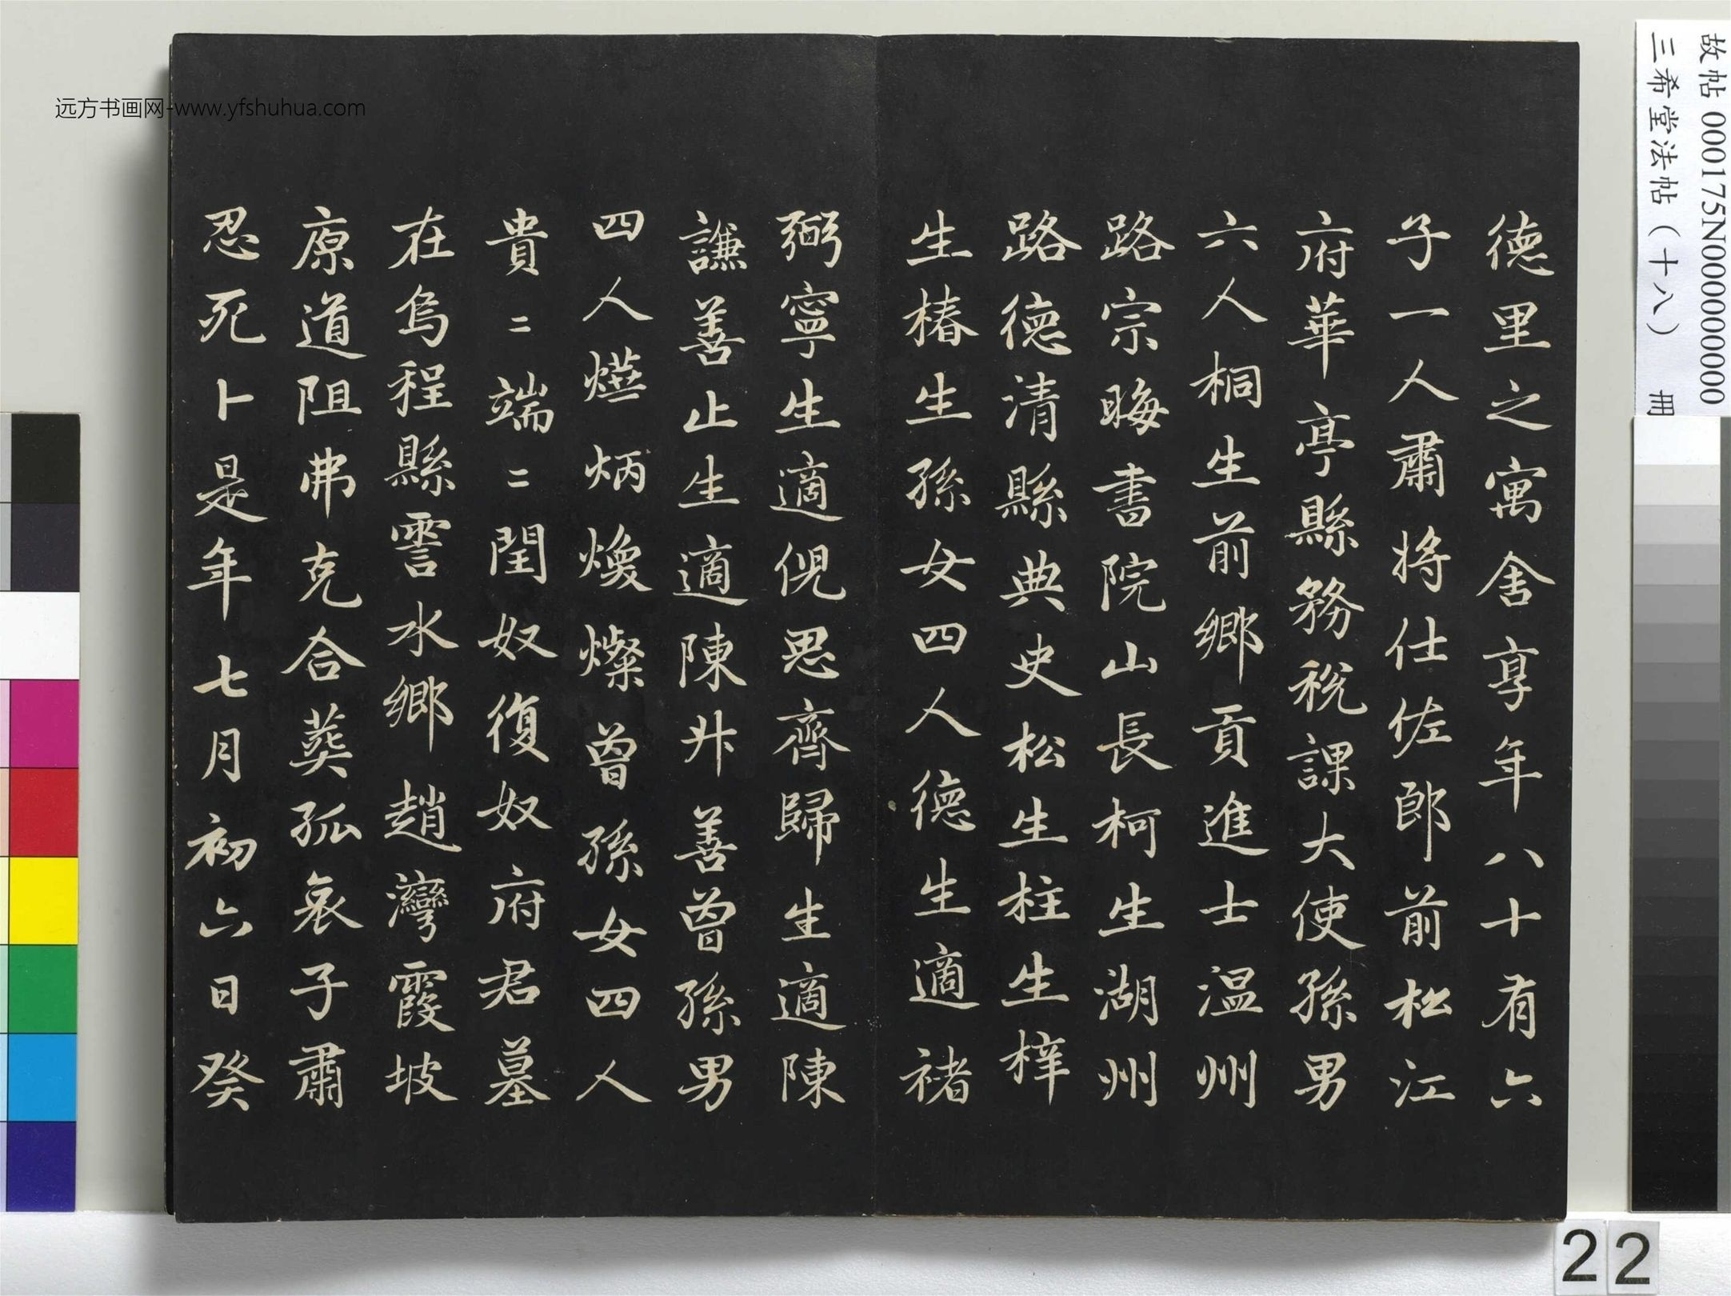 德里之寓舍享年八十有六
子一人肅將仕佐郎前松江
府華亭縣務稅課大使孫男
六人桐生前鄉貢進士温州
路宗晦書院山長柯生湖州
路德清縣典史松生柱生梓
生椿生孫女四人德生適褚
弼寧生適倪思齊歸生適陳
謙善止生適陳升善曾孫男
四人炳煥燦曾孫女四人
貴二端二閏奴復奴府君墓
在烏程縣霅水鄉趙灣霞坡
原道阻弗克合葬孤哀子肅
忍死卜是年七月初六日癸
故帖 000175N000000000
三希堂法帖（十八） 冊
远方书画网-www.yfshuhua.com
22